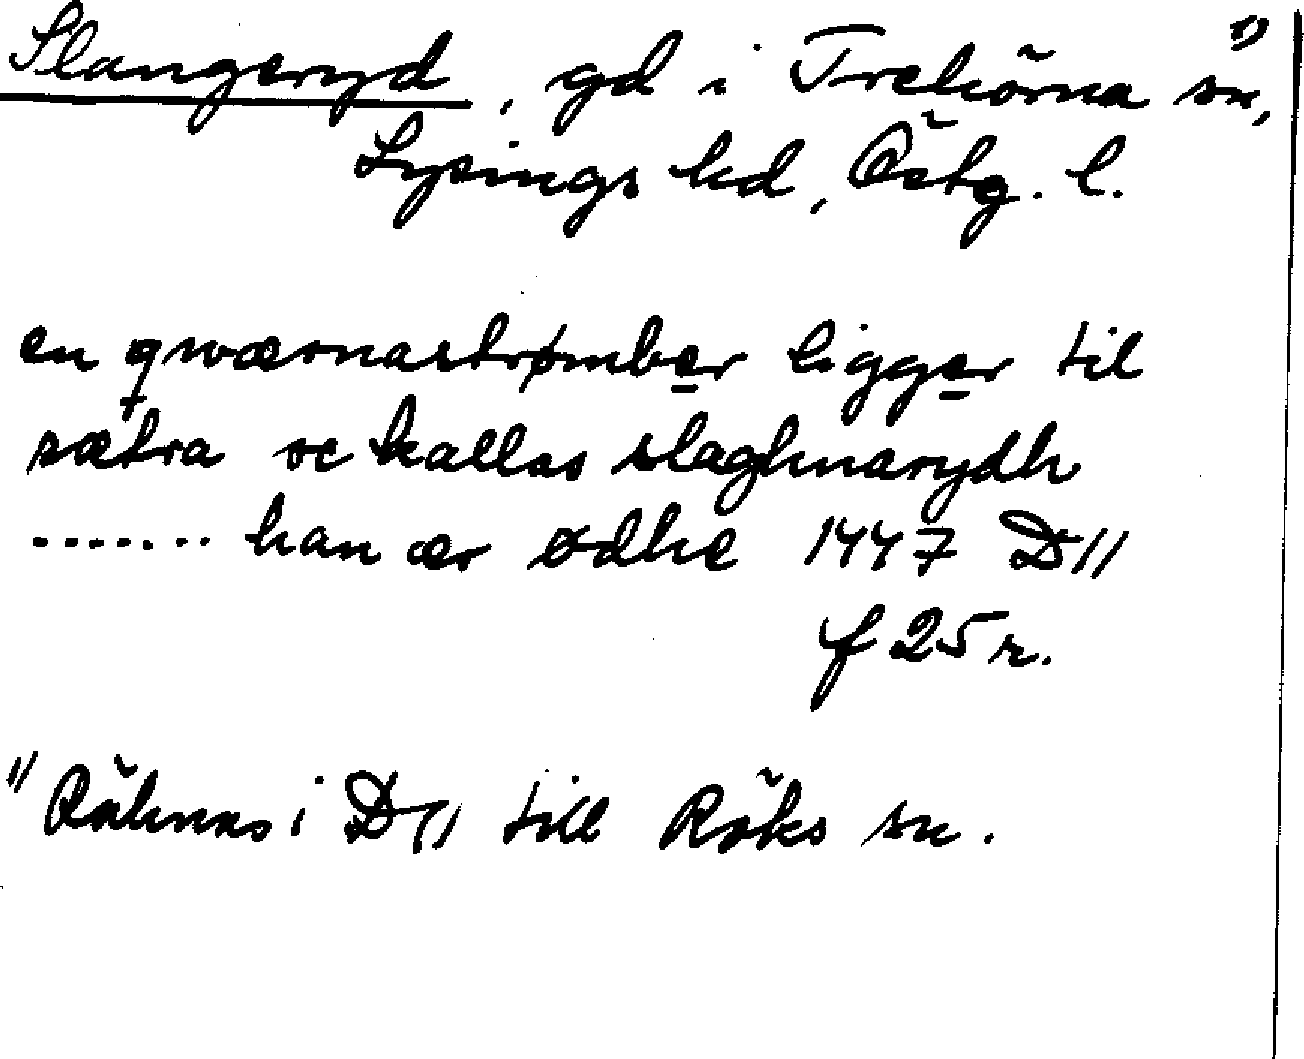 Slangeryd, gd i Trehörna sn, 1)
Lysings hd, Östg. l.
en qwærnastrømber ligger til
sætra oc kallas slaghnarydh
....... han ær ødhe 1447 D11
f 25 r.
1) Räknas i D11 till Röks sn.